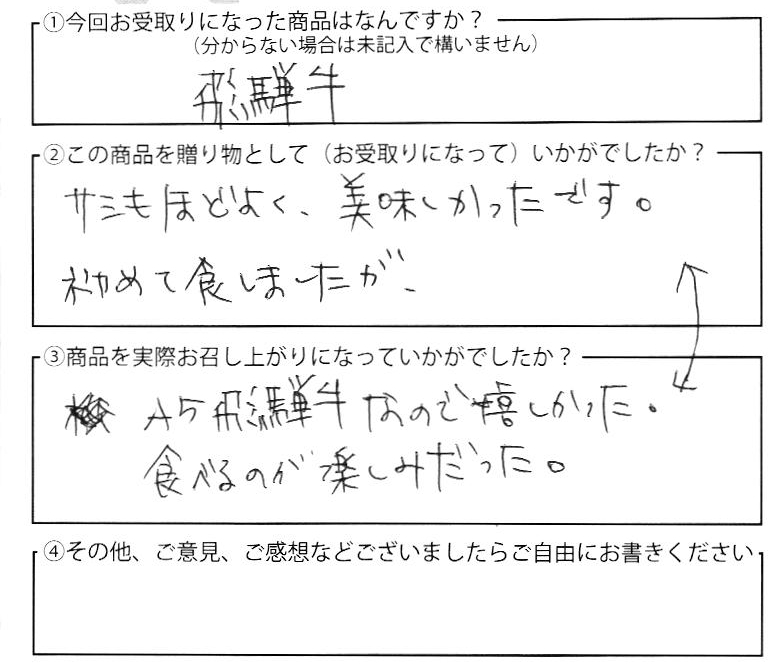 ①今回お受取りになった商品はなんですか？
（分からない場合は未記入で構いません）
飛騨牛
②この商品を贈り物として（お受取りになって）いかがでしたか？
サシもほどよく、美味しかったです。
初めて食しましたが、
③商品を実際お召し上がりになっていかがでしたか？
A5飛騨牛なので嬉しかった。
食べるのが楽しみだった。
④その他、ご意見、ご感想などございましたらご自由にお書きください